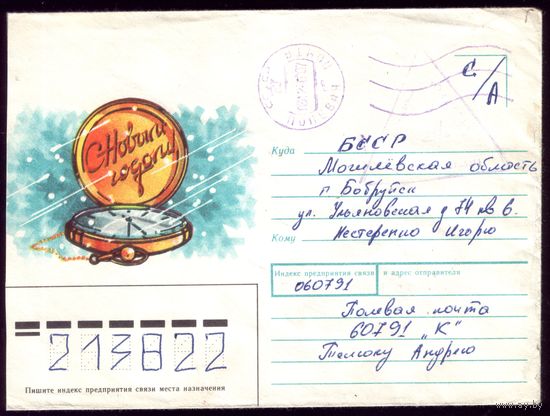 С Новым
годом!
С/А
Куда БССР
Могилёвская область
г. Бобруйск
ул. Ульяновская д 74 кв 6.
Кому Нестеренко Игорю
Индекс предприятия связи и адрес отправителя
060791
Полевая почта
60791 "К"
213822
Пишите индекс предприятия связи места назначения
www.ay.by